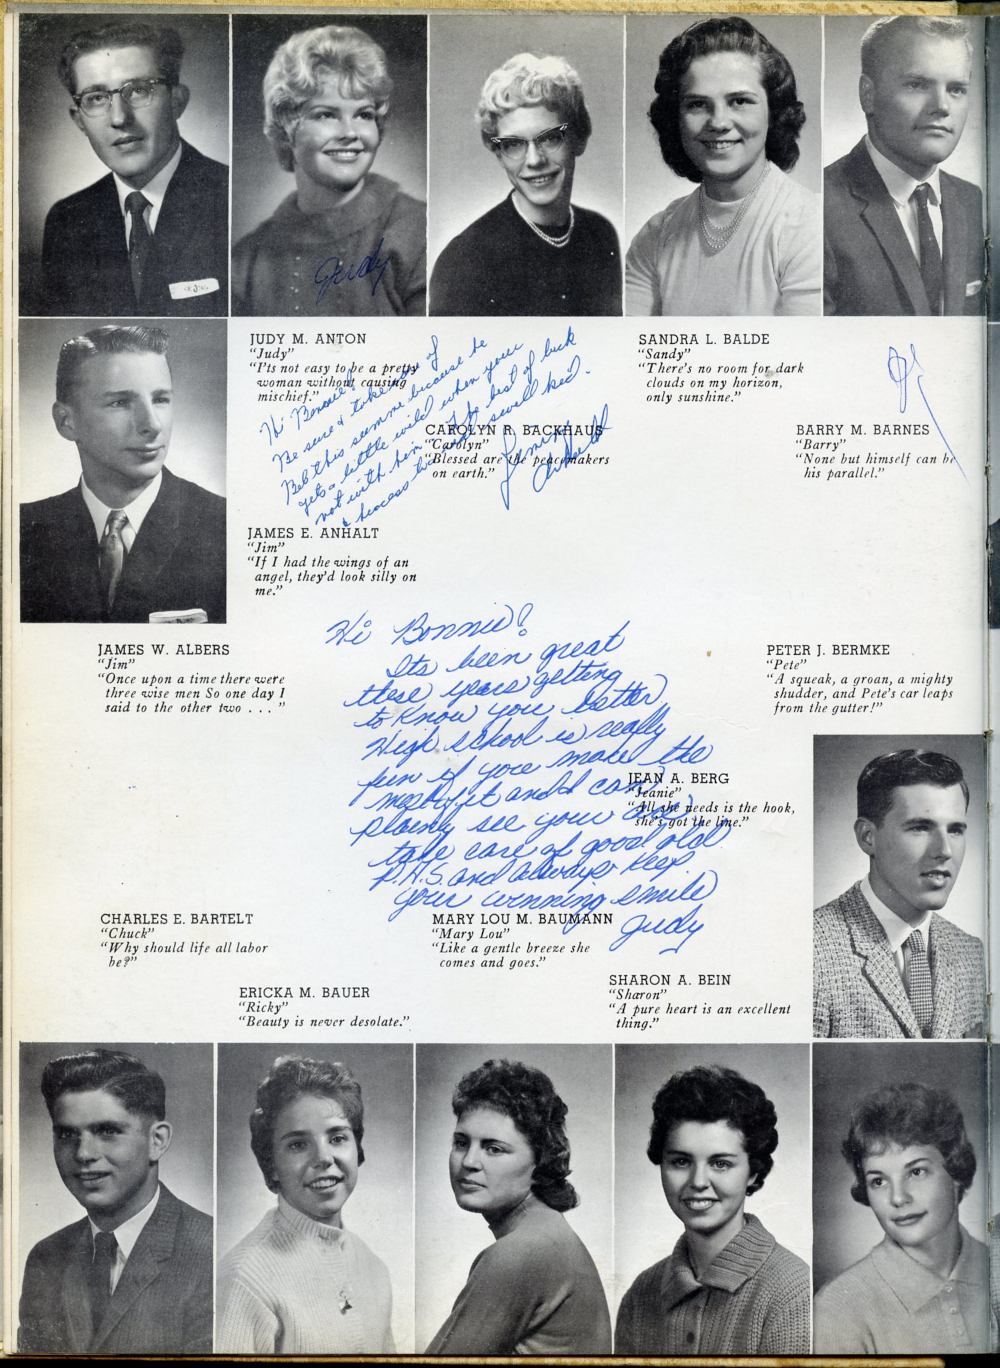 Judy
JUDY M. ANTON
"Judy"
"I'ts not easy to be a pretty
woman without causing
mischief."
SANDRA L. BALDE
"Sandy"
"There's no room for dark
clouds on my horizon,
only sunshine."
CAROLYN R. BACKHAUS
"Carolyn"
"Blessed are the peacemakers
on earth."
BARRY M. BARNES
"Barry"
"None but himself can be
his parallel."
Hi Bonnie!
Be sure & take care of
Bob this summer because he
gets a little wild when your
not with him. The best of luck
to a
swell kid.
JAMES E. ANHALT
"Jim"
"If I had the wings of an
angel, they'd look silly on
me."
JAMES W. ALBERS
"Jim"
"Once upon a time there were
three wise men So one day I
said to the other two . . . "
PETER J. BERMKE
"Pete"
"A squeak, a groan, a mighty
shudder, and Pete's car leaps
from the gutter!"
Hi Bonnie!
Its been great
these years getting
to know you better.
High school is really
fun if you make the
most of it and I can
plainly see your
take care of good old
P.H.S. and always keep
your winning smile
Judy
JEAN A. BERG
"Jeanie"
"All she needs is the hook,
she's got the line."
CHARLES E. BARTELT
"Chuck"
"Why should life all labor
be?"
MARY LOU M. BAUMANN
"Mary Lou"
"Like a gentle breeze she
comes and goes."
ERICKA M. BAUER
"Ricky"
"Beauty is never desolate."
SHARON A. BEIN
"Sharon"
"A pure heart is an excellent
thing."